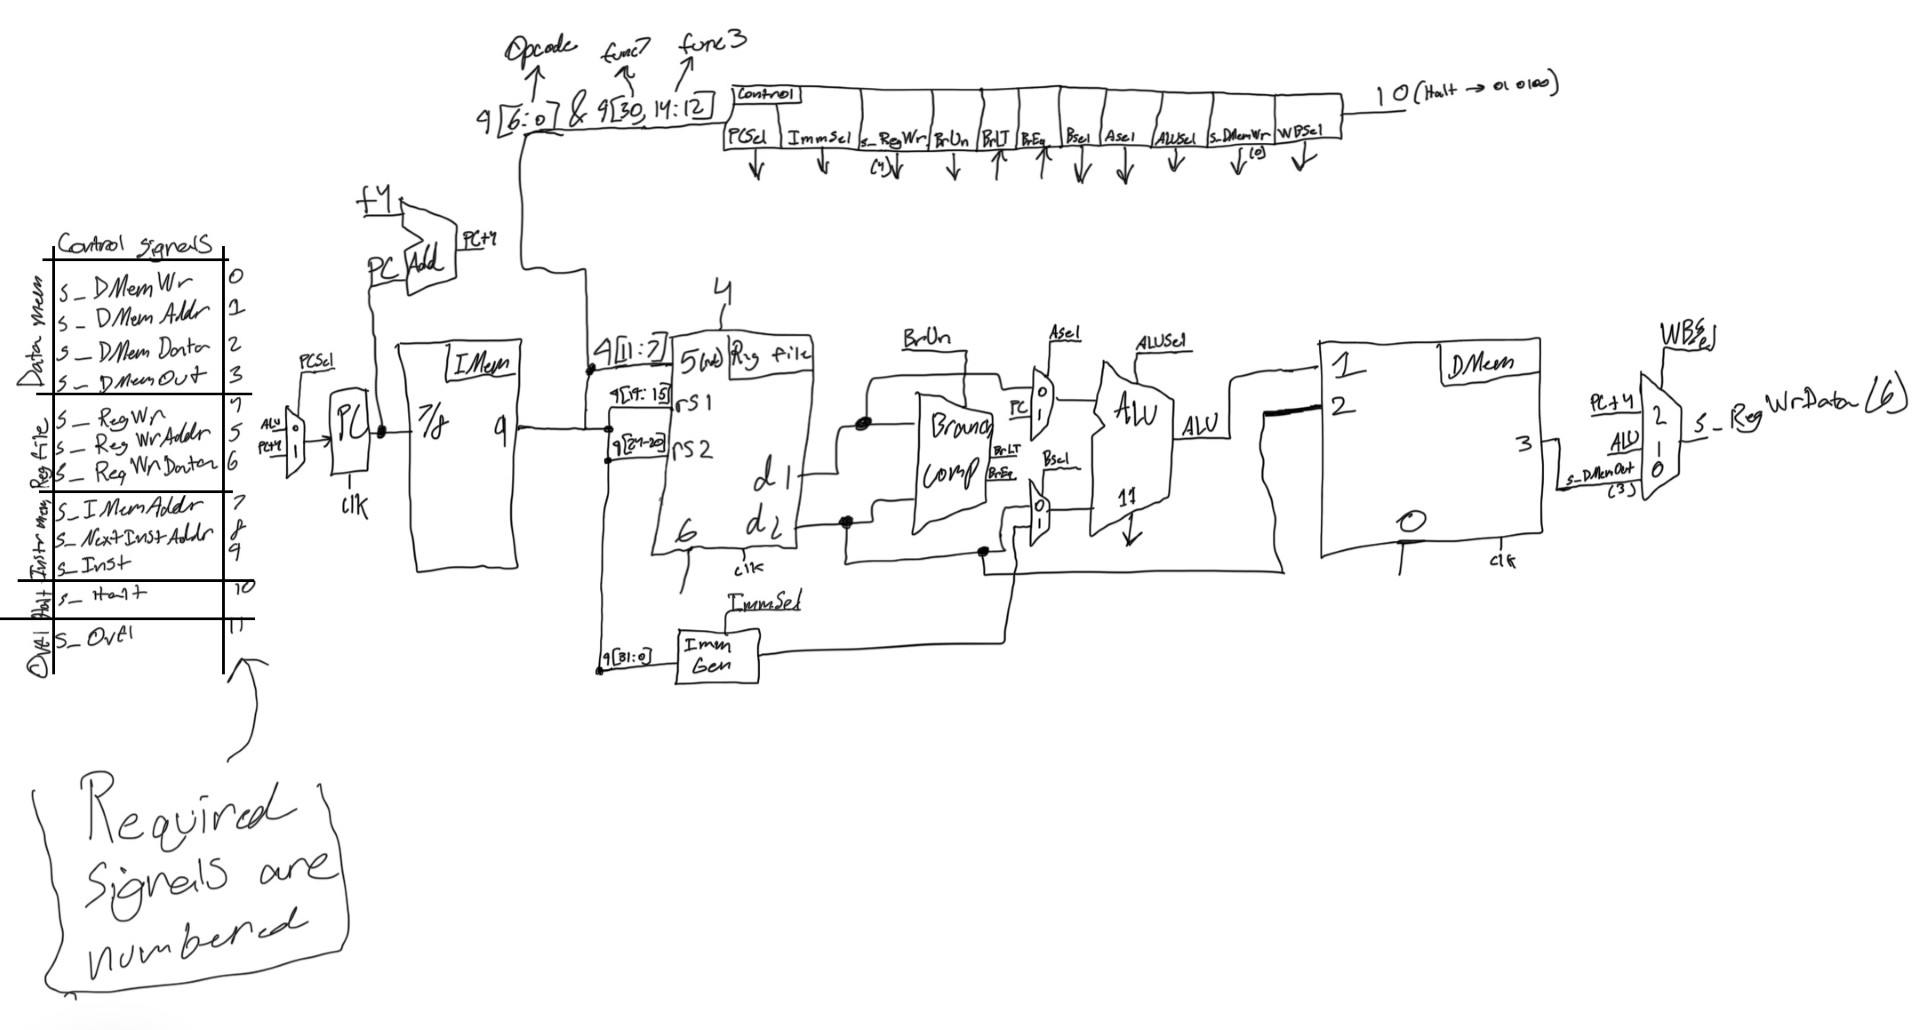 Opcode func7 func3
9[6:0] & 9[30, 14:12]
Control
PCSel ImmSel s_RegWr BrUn BrLT BrEq Bsel Asel ALUSel s_DMemWr WBSel
(4) (0)
10 (Halt → 010100)
+4
PC Add PC+4
Control signals
Data mem
s_DMemWr 0
s_DMemAddr 1
s_DMemData 2
s_DMemOut 3
Reg file
s_RegWr 4
s_RegWrAddr 5
s_RegWrData 6
Instr mem
s_IMemAddr 7
s_NextInstAddr 8
s_Inst 9
Halt
s_Halt 10
Ovfl
s_Ovfl 11
PCSel
ALU 0
PC+4 1
PC
clk
IMem
7/8 9
4
9[11:7] 5(rd) Reg file
9[19:15] rs1
9[24-20] rs2
d1
d2
6
clk
ImmSel
9[31:0] Imm Gen
BrUn
Branch
comp
BrLT
BrEq
Asel
0
PC 1
Bsel
0
1
ALUSel
ALU
11
ALU
DMem
1
2
3
0
clk
WBSel
PC+4 2
ALU 1
s_DMemOut 0
(3)
s_RegWrData (6)
Required
signals are
numbered